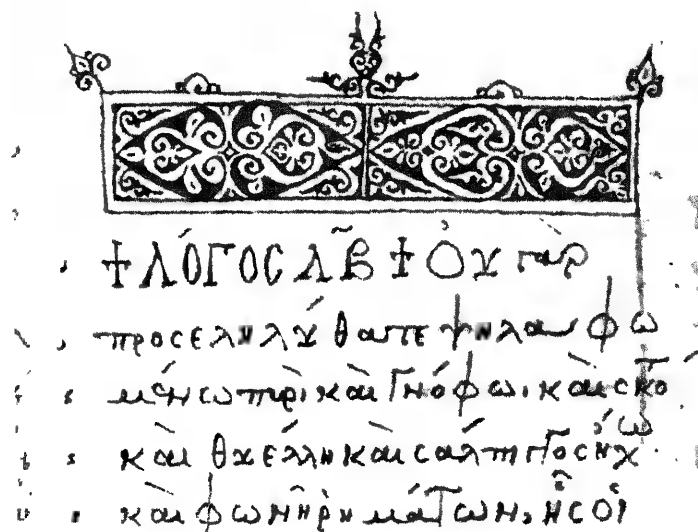 + ΛΌΓΟC ΛΒ + Οὐ γὰρ
προσεληλύθατε ψηλαφω
μένω πυρὶ καὶ γνόφω, καὶ σκό
καὶ θυέλλη καὶ σάλπιγγος ήχω
καὶ φωνῆ ῥημάτων, ἧς οἱ